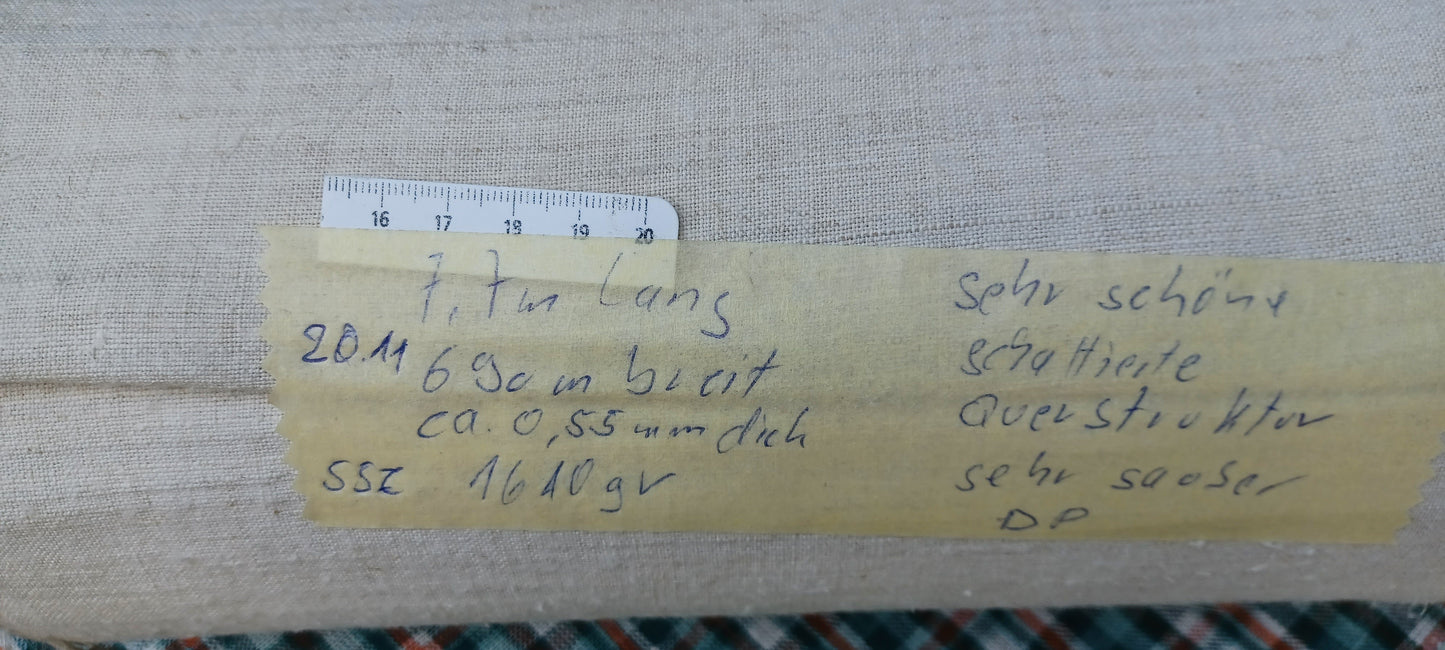 16 17 18 19 20
7,7m lang
20.11 69cm breit
ca. 0,55mm dick
SSZ 1610gr
sehr schöne
schattierte
Querstruktur
sehr sauber
DP